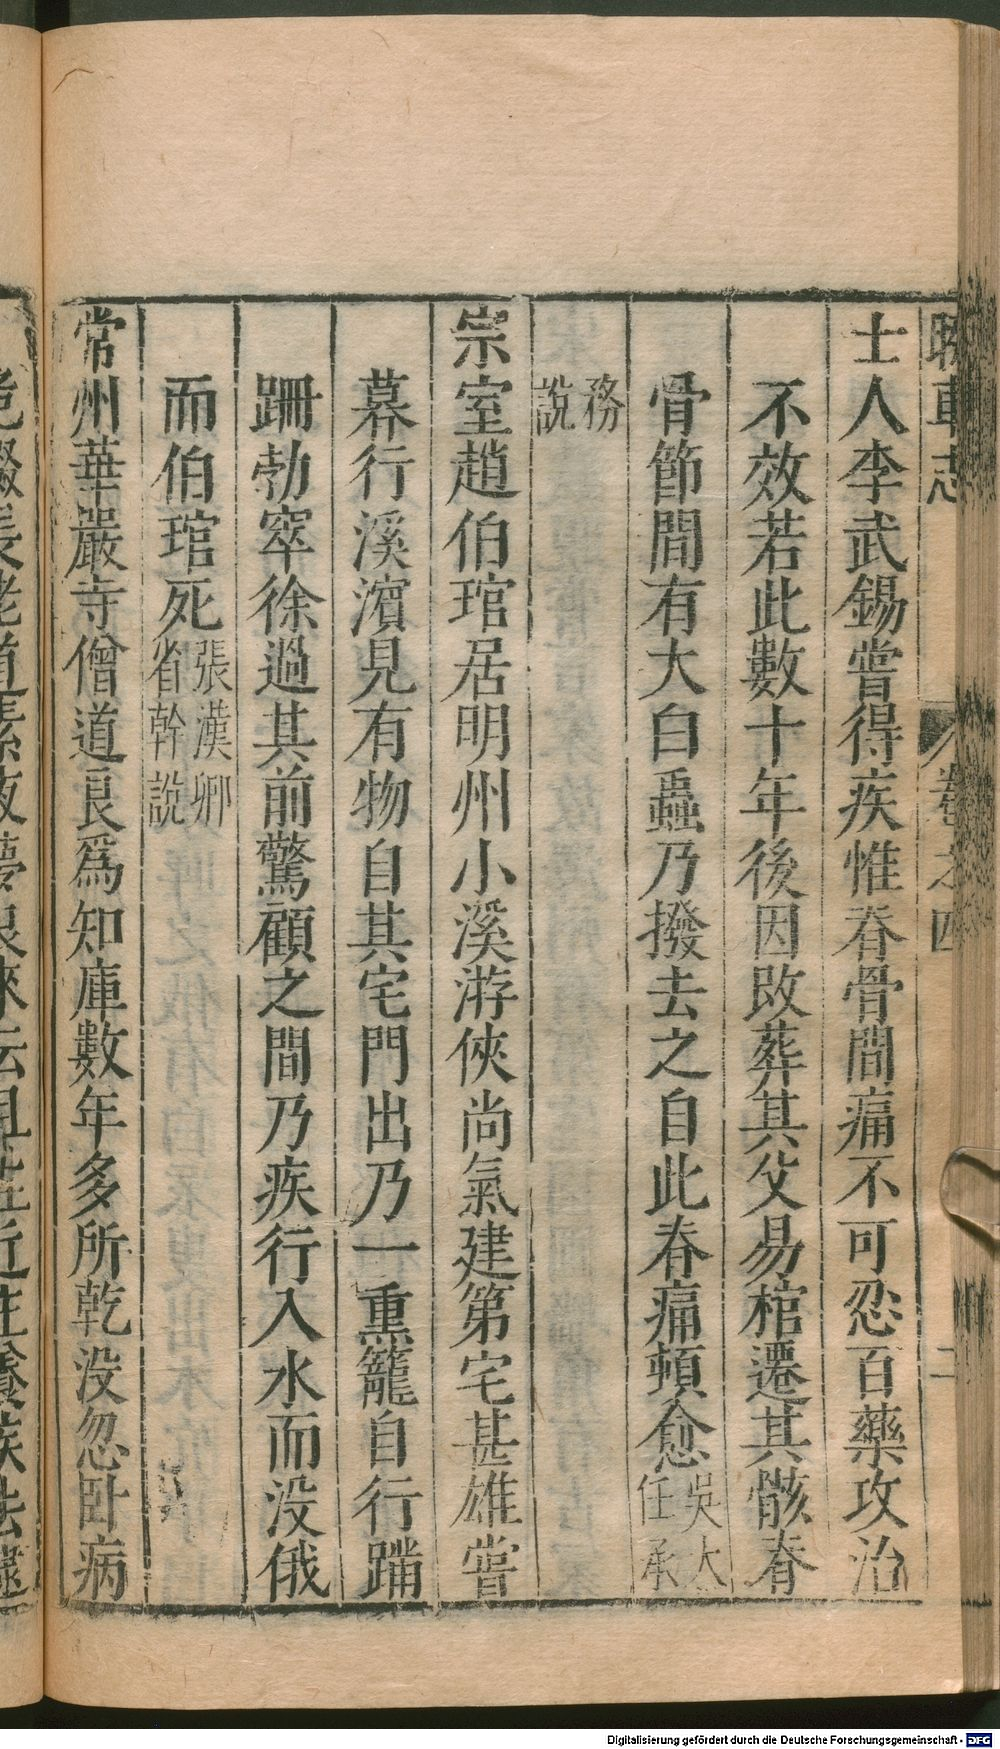 士人李武錫嘗得疾惟脊骨間痛不可忍百藥攻治
不效若此數十年後因改葬其父易棺遷其骸脊
骨節間有大白蟲乃撥去之自此脊痛頓愈吳大任承
務說
宗室趙伯琯居明州小溪游俠尚氣建第宅甚雄嘗
暮行溪濱見有物自其宅門出乃一熏籠自行蹣
跚勃窣徐過其前驚顧之間乃疾行入水而没俄
而伯琯死張漢卿省幹說
常州華嚴寺僧道良爲知庫數年多所乾没忽卧病
卷之四
二
Digitalisierung gefördert durch die Deutsche Forschungsgemeinschaft - DFG